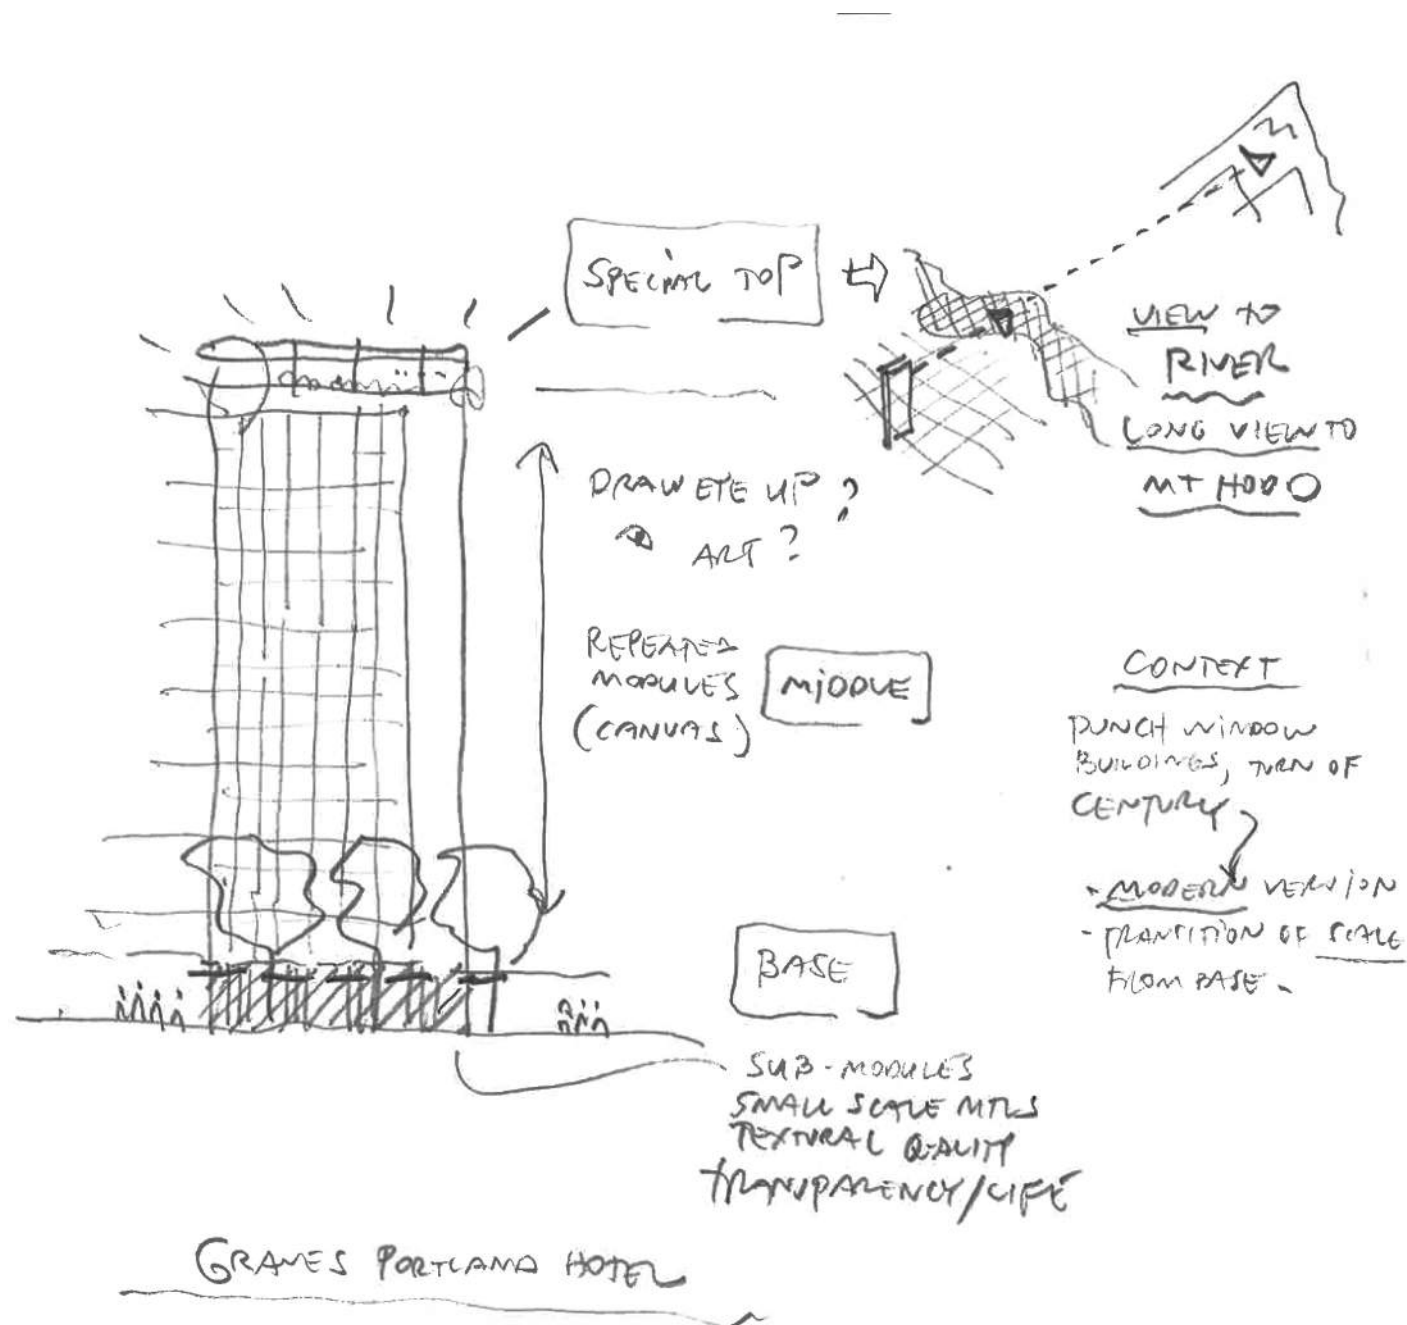 SPECIAL TOP
VIEW TO
RIVER
LONG VIEW TO
MT HOOD
DRAW EYE UP ?
ART ?
REPEATED
MODULES
(CANVAS)
MIDDLE
CONTEXT
PUNCH WINDOW
BUILDINGS, TURN OF
CENTURY
- MODERN VERSION
- TRANSITION OF SCALE
FROM BASE -
BASE
SUB-MODULES
SMALL SCALE MTLS
TEXTURAL QUALITY
TRANSPARENCY/LIFE
GRAVES PORTLAND HOTEL